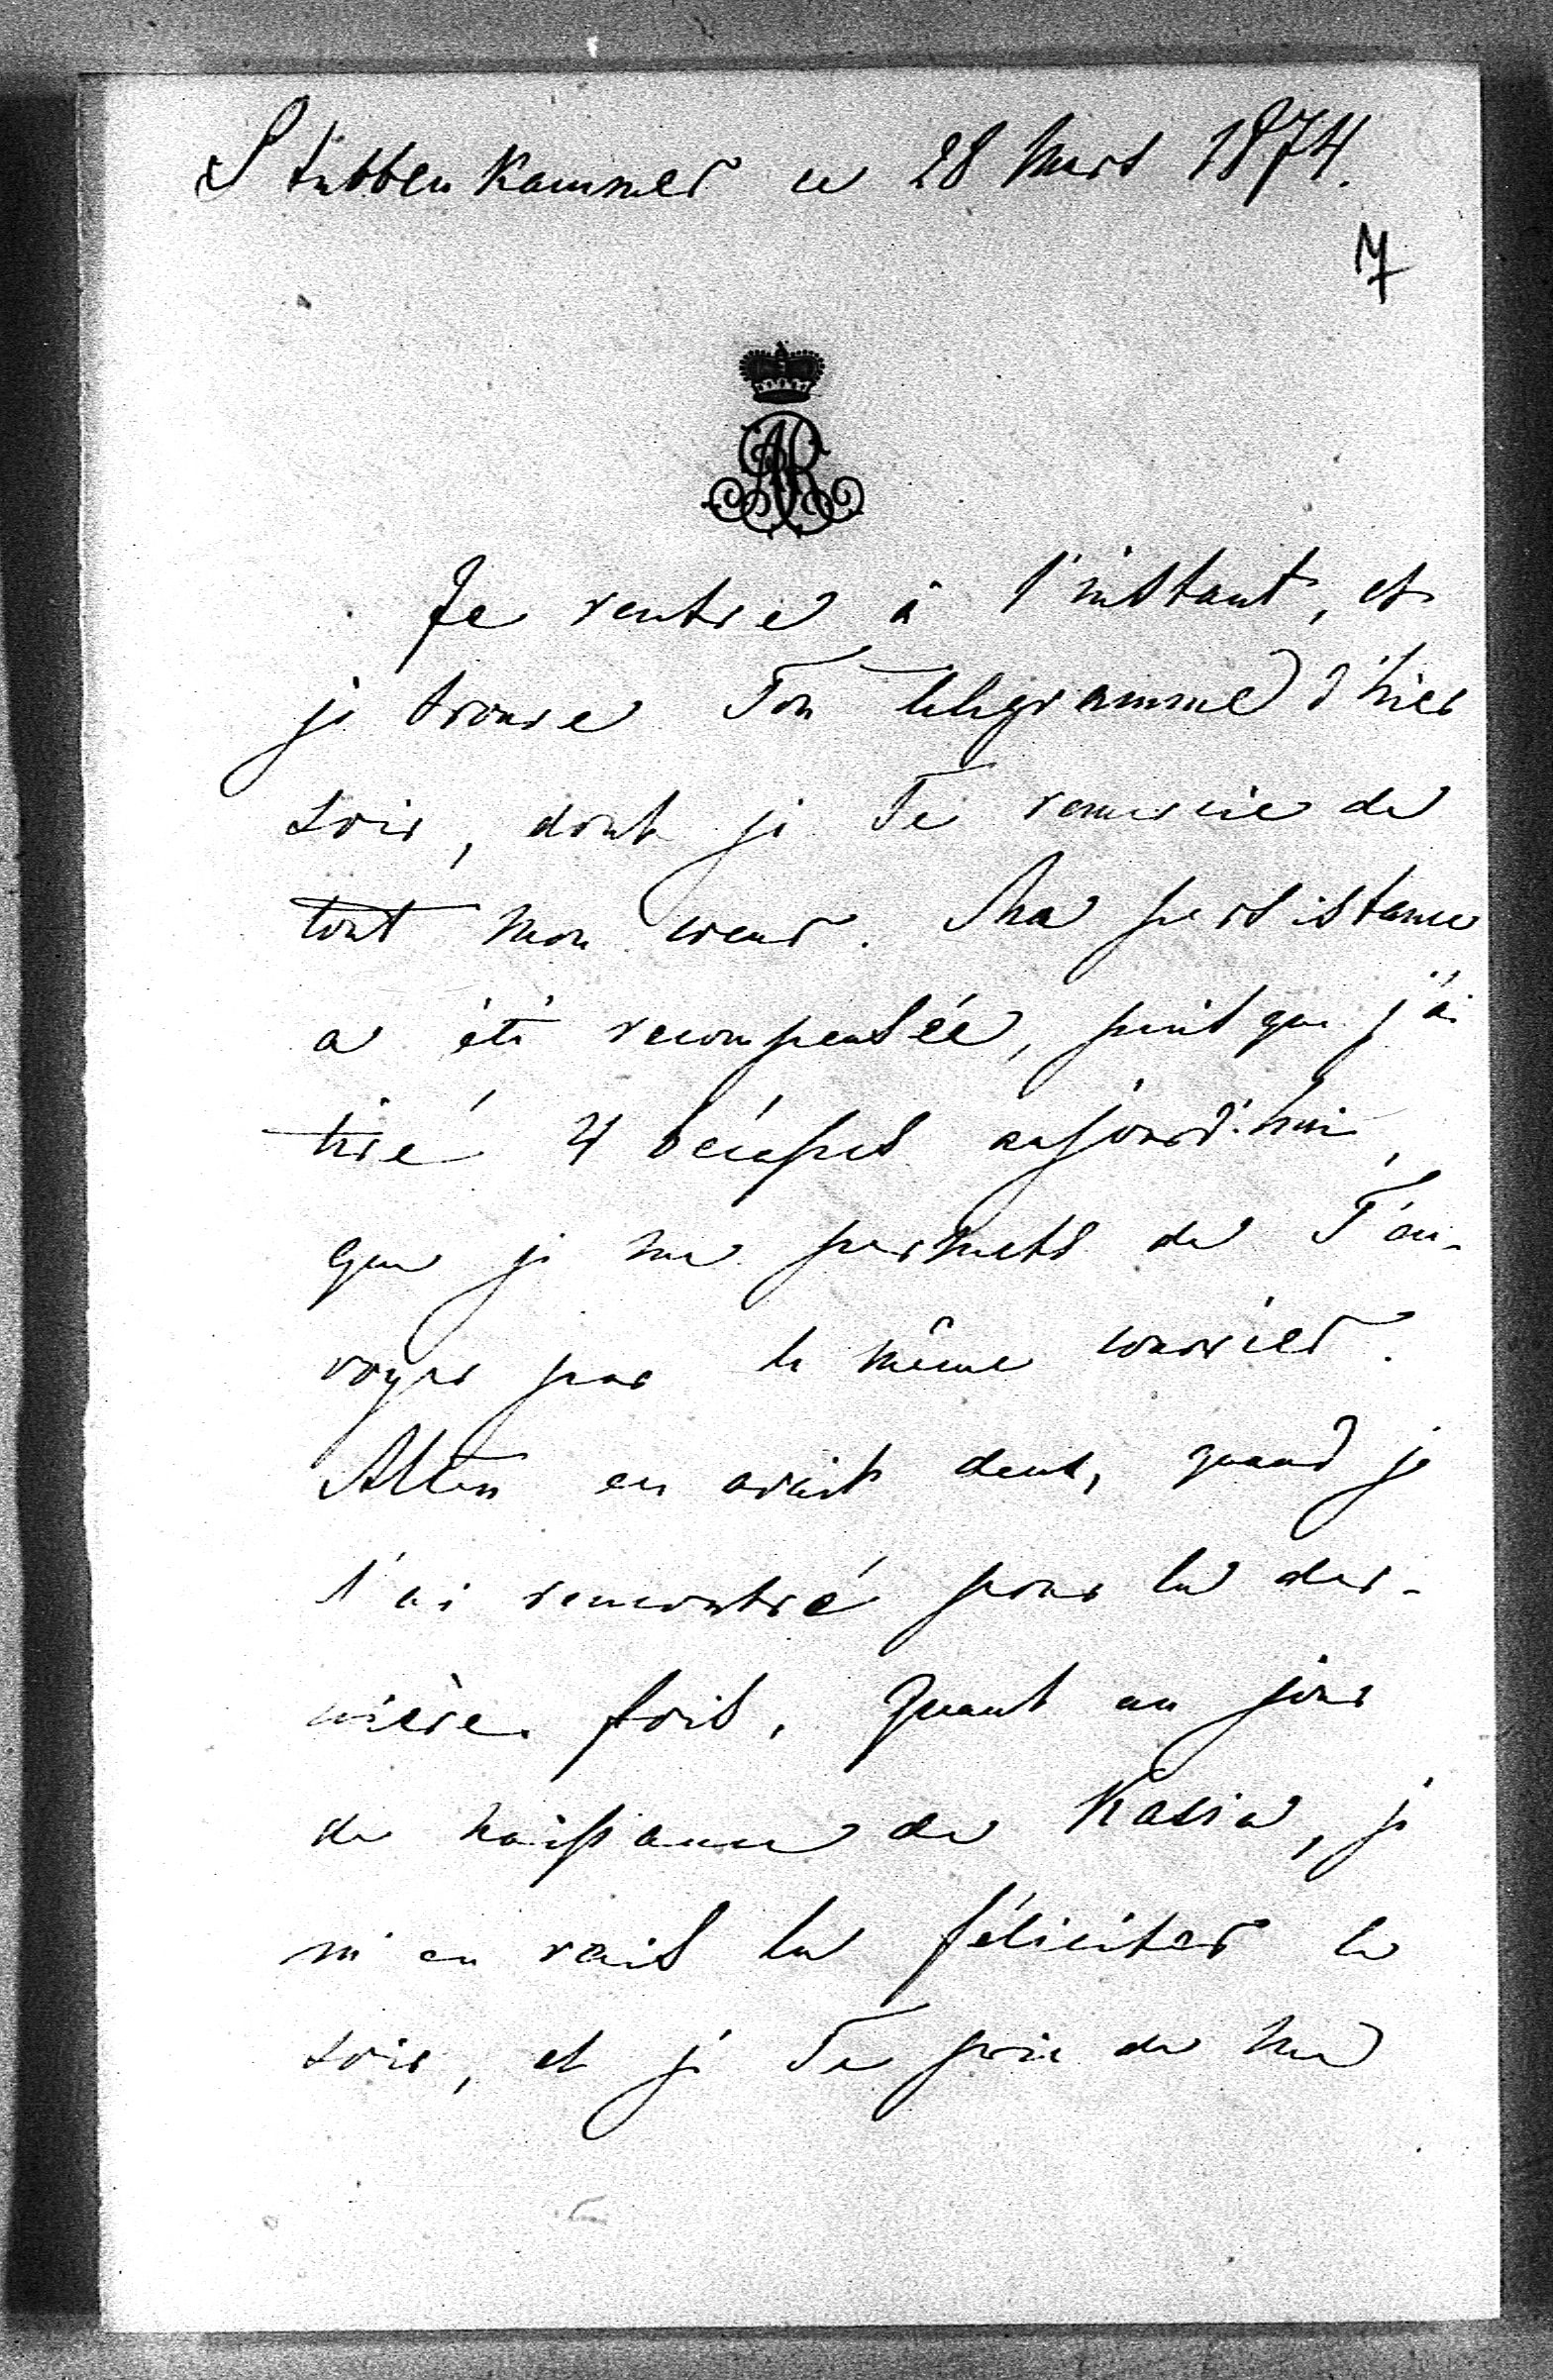 Stubbenkammer ce 28 Mars 1874.
7
AR
Je rentre à l'instant, et
je trouve Ton telegramme d'hier
soir, dont je Te remercie de
tout mon coeur. Ma persistance
a été recompensée, puisque j'ai
tiré 4 bécasses aujourd'hui,
que je me permets de T'en-
voyer par le même courrier.
Alten en avait deux, quand je
l'ai rencontré pour la der-
nière fois. Quant au jour
de naissance de Kasia, je
m'en vais la féliciter ce
soir, et je Te prie de me